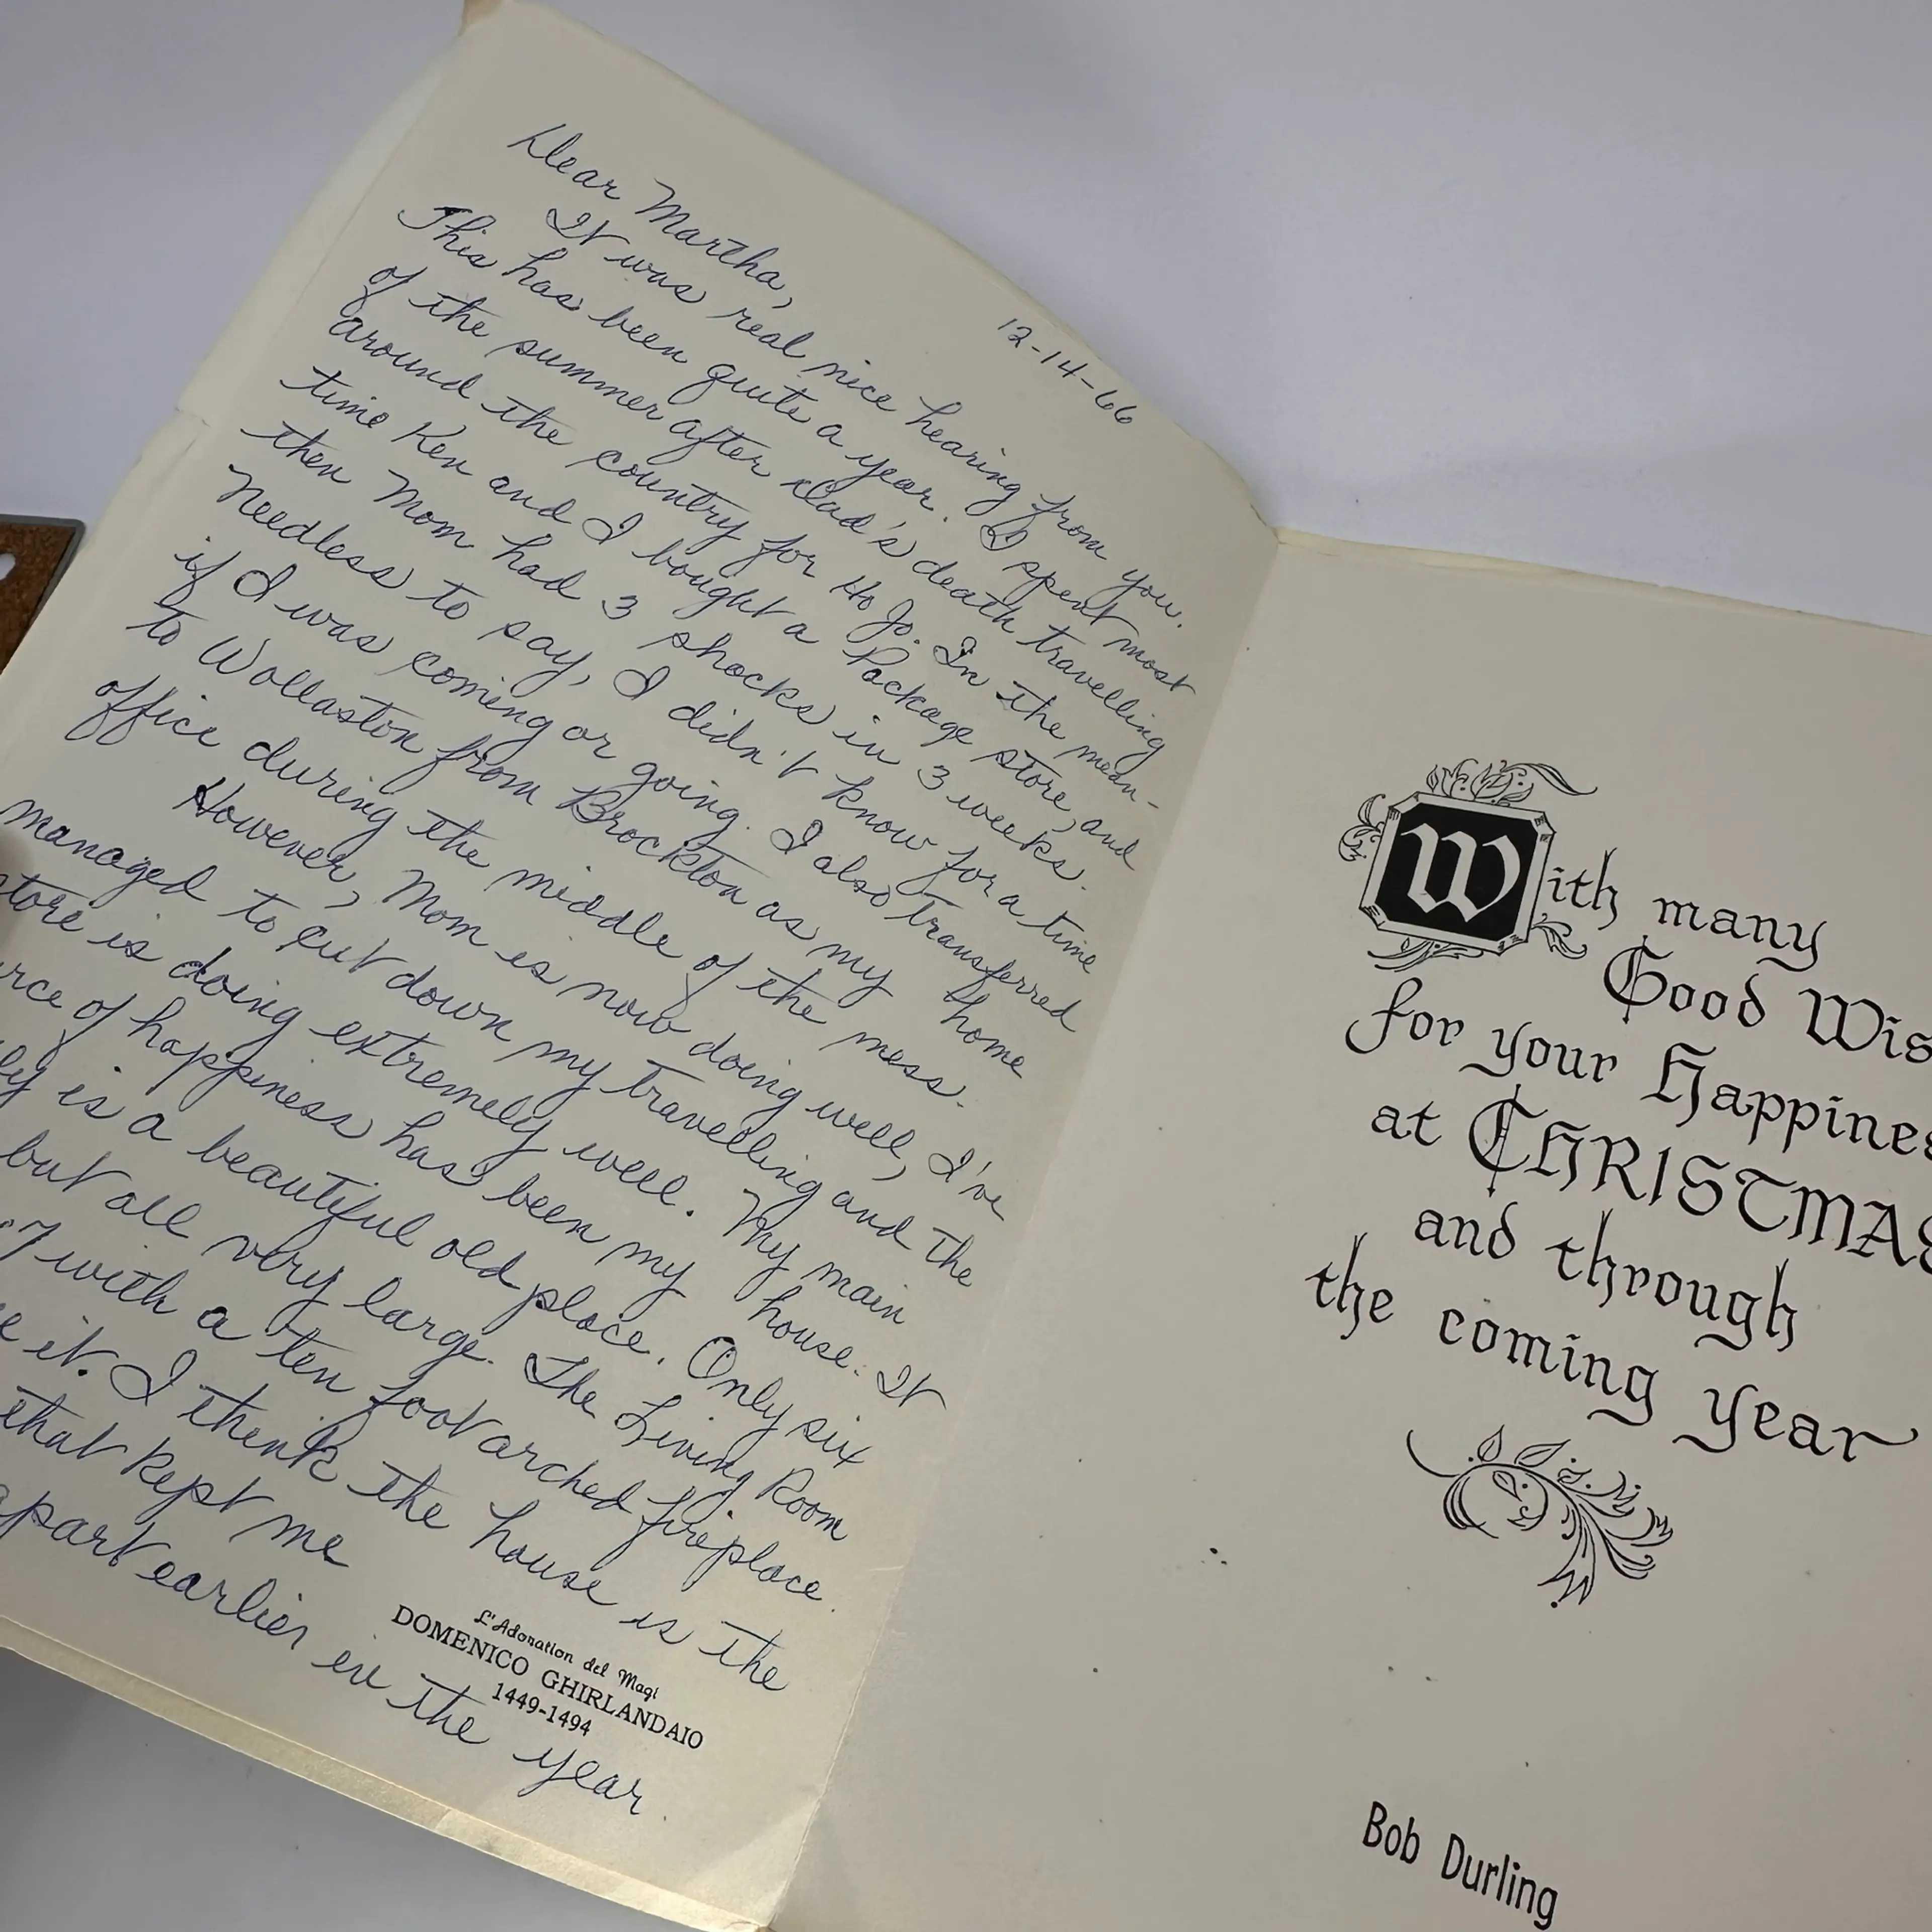 12-14-66
Dear Martha,
It was real nice hearing from you.
This has been quite a year. I spent most
of the summer after dad's death travelling
around the country for Ho Jo. In the mean-
time Ken and I bought a Package store, and
then Mom had 3 shocks in 3 weeks.
Needless to say, I didn't know for a time
if I was coming or going. I also transferred
to Wollaston from Brockton as my home
office during the middle of the mess.
However, Mom is now doing well, I've
managed to cut down my travelling and the
store is doing extremely well. My main
rce of happiness has been my house. It
ly is a beautiful old place. Only six
but all very large. The Living Room
7 with a ten foot arched fireplace.
e it. I think the house is the
that kept me
apart earlier in the year.
L'Adoration del Magi
DOMENICO GHIRLANDAIO
1449-1494
With many
Good Wis
for your Happines
at CHRISTMAS
and through
the coming year
Bob Durling